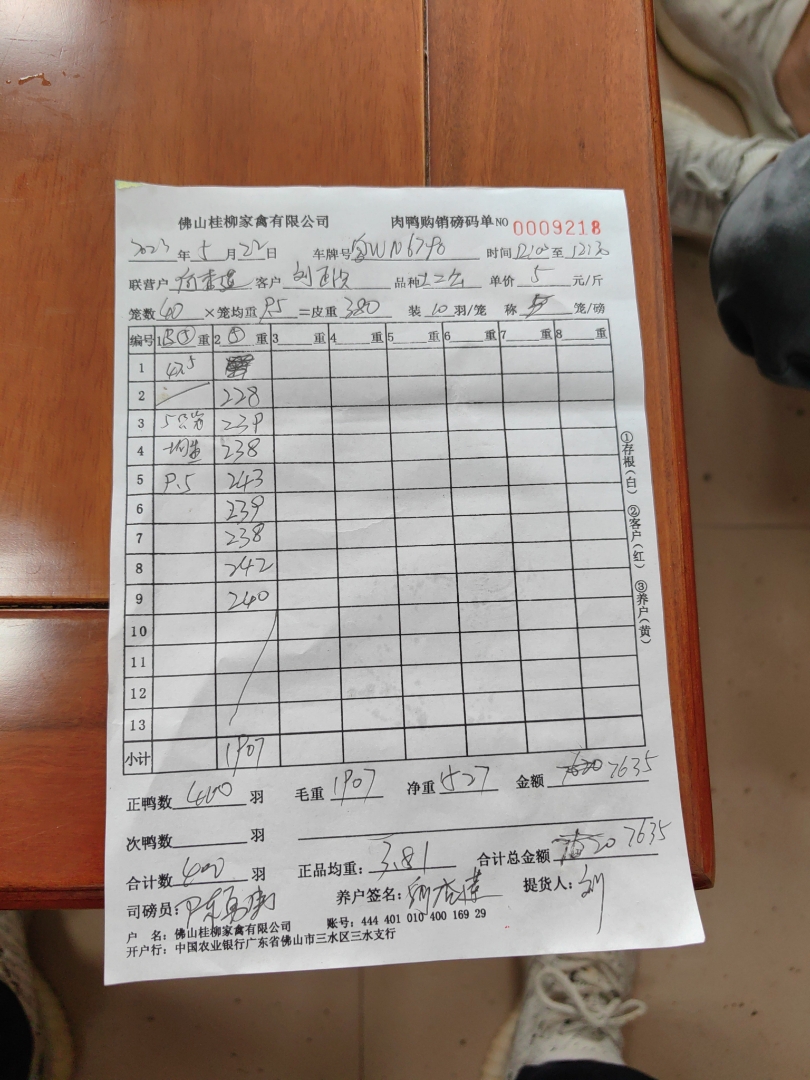 佛山桂柳家禽有限公司 肉鸭购销磅码单NO 0009218
2023 年 5 月 22 日 车牌号 WN6790 时间 至
联营户 客户 刘 品种 单价 5 元/斤
笼数 40 ×笼均重 9.5 =皮重 380 装 10 羽/笼 称 5 笼/磅
编号 1 ⑤ 重 2 ⑤ 重 3 重 4 重 5 重 6 重 7 重 8 重
1 47.5
2 228
3 239
4 238
5 9.5 243
6 239
7 238
8 242
9 240
10
11
12
13
小计 1907
正鸭数 400 羽 毛重 1907 净重 1527 金额 7620 7635
次鸭数 羽
合计数 400 羽 正品均重: 3.81 合计总金额 7635
司磅员: 养户签名: 提货人: 刘
户 名: 佛山桂柳家禽有限公司 账号: 444 401 010 400 169 29
开户行: 中国农业银行广东省佛山市三水区三水支行
①存根(白) ②客户(红) ③养户(黄)